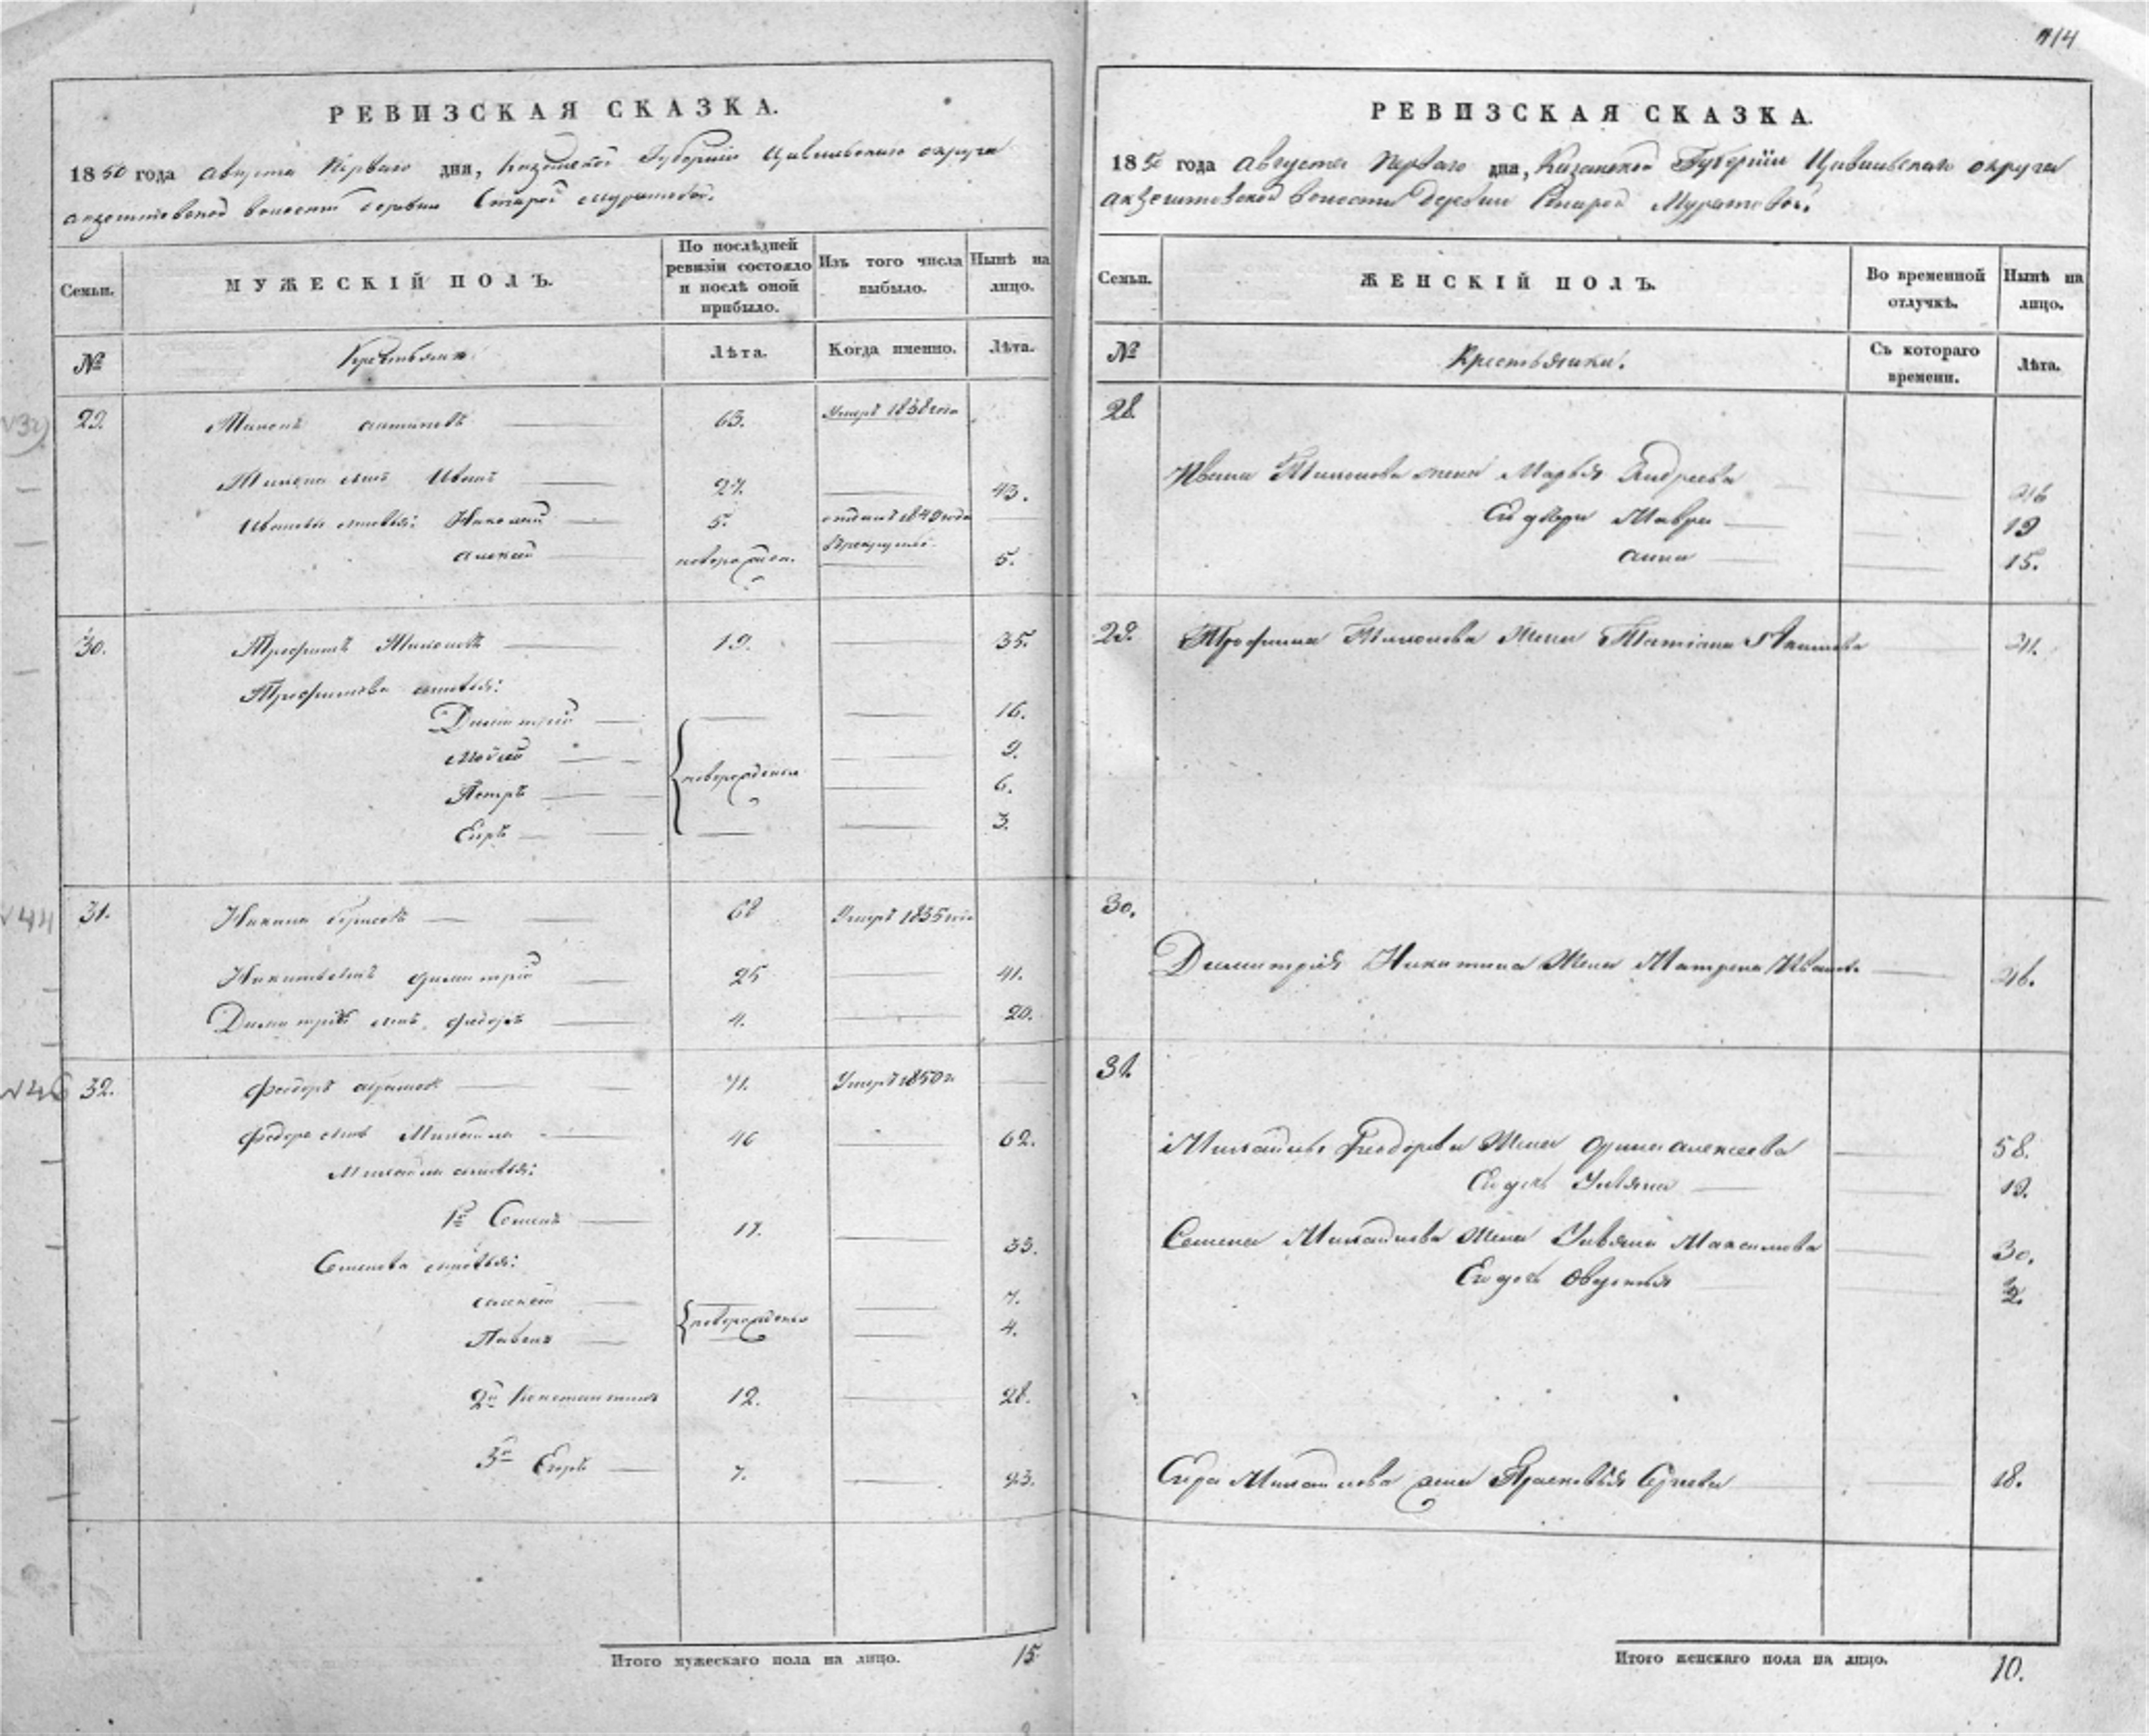 414
РЕВИЗСКАЯ СКАЗКА.
1850 года Августа Перваго дня, Казанской Губернiи Цивильскаго округа
волости деревни Старой Муратовой.
Семьи. МУЖЕСКIЙ ПОЛЪ. По послѣдней ревизiи состояло и послѣ оной прибыло. Изъ того числа выбыло. Нынѣ на лицо.
№ Крестьяне Лѣта. Когда именно. Лѣта.
N39
29. Тимонъ Антиповъ 63. Умеръ 1838 года
Тимона сынъ Иванъ 27. 43.
Ивановы сыновья: Николай 5. отданъ 1849 года
въ рекруты
Алексей новорожден. 5.
30. Трофимъ Тимоновъ 19. 35.
Трофимова сыновья:
Димитрiй 16.
Мойсей 9.
новорожденные
Петръ 6.
Егоръ 3.
N44
31. Никита Борисовъ 68 Умеръ 1835 года
Никитинъ сынъ Димитрiй 25 41.
Димитрiя сынъ Федоръ 4. 20.
N46
32. Федоръ Абрамовъ 71. Умеръ 1850 г.
Федора сынъ Михайла 46 62.
Михайла сыновья:
1й Семенъ 17. 33.
Семенова сыновья:
Алексей 7.
новорожденные
Павелъ 4.
2й Константинъ 12. 28.
3й Егоръ 7. 23.
Итого мужескаго пола на лицо. 15.
РЕВИЗСКАЯ СКАЗКА.
1850 года Августа Перваго дня, Казанской Губернiи Цивильскаго округа
волости Деревни Старой Муратовой.
Семьи. ЖЕНСКIЙ ПОЛЪ. Во временной отлучкѣ. Нынѣ на лицо.
№ Крестьянки. Съ котораго времени. Лѣта.
28.
Ивана Тимонова жена Марья Андреева 46
Его дочери Мавра 19
Анна 15.
29. Трофима Тимонова Жена Татiана 41.
30.
Димитрiя Никитина Жена Матрена Иванова 46.
31.
Михайлы Феодорова Жена Орина Алексеева 58.
Его дочь Ульяна 19.
Семена Михайлова Жена Ульяна Максимова 30.
Его дочь Овдотья 2.
Егора Михайлова жена Прасковья Сергеева 18.
Итого женскаго пола на лицо. 10.